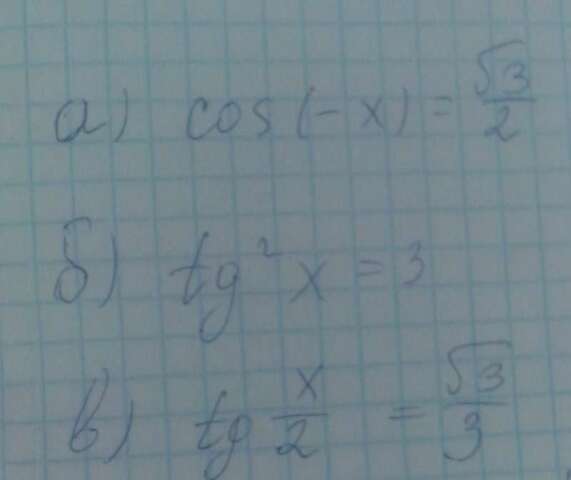 а) cos(-x) = √3/2
б) tg²x = 3
в) tg x/2 = √3/3